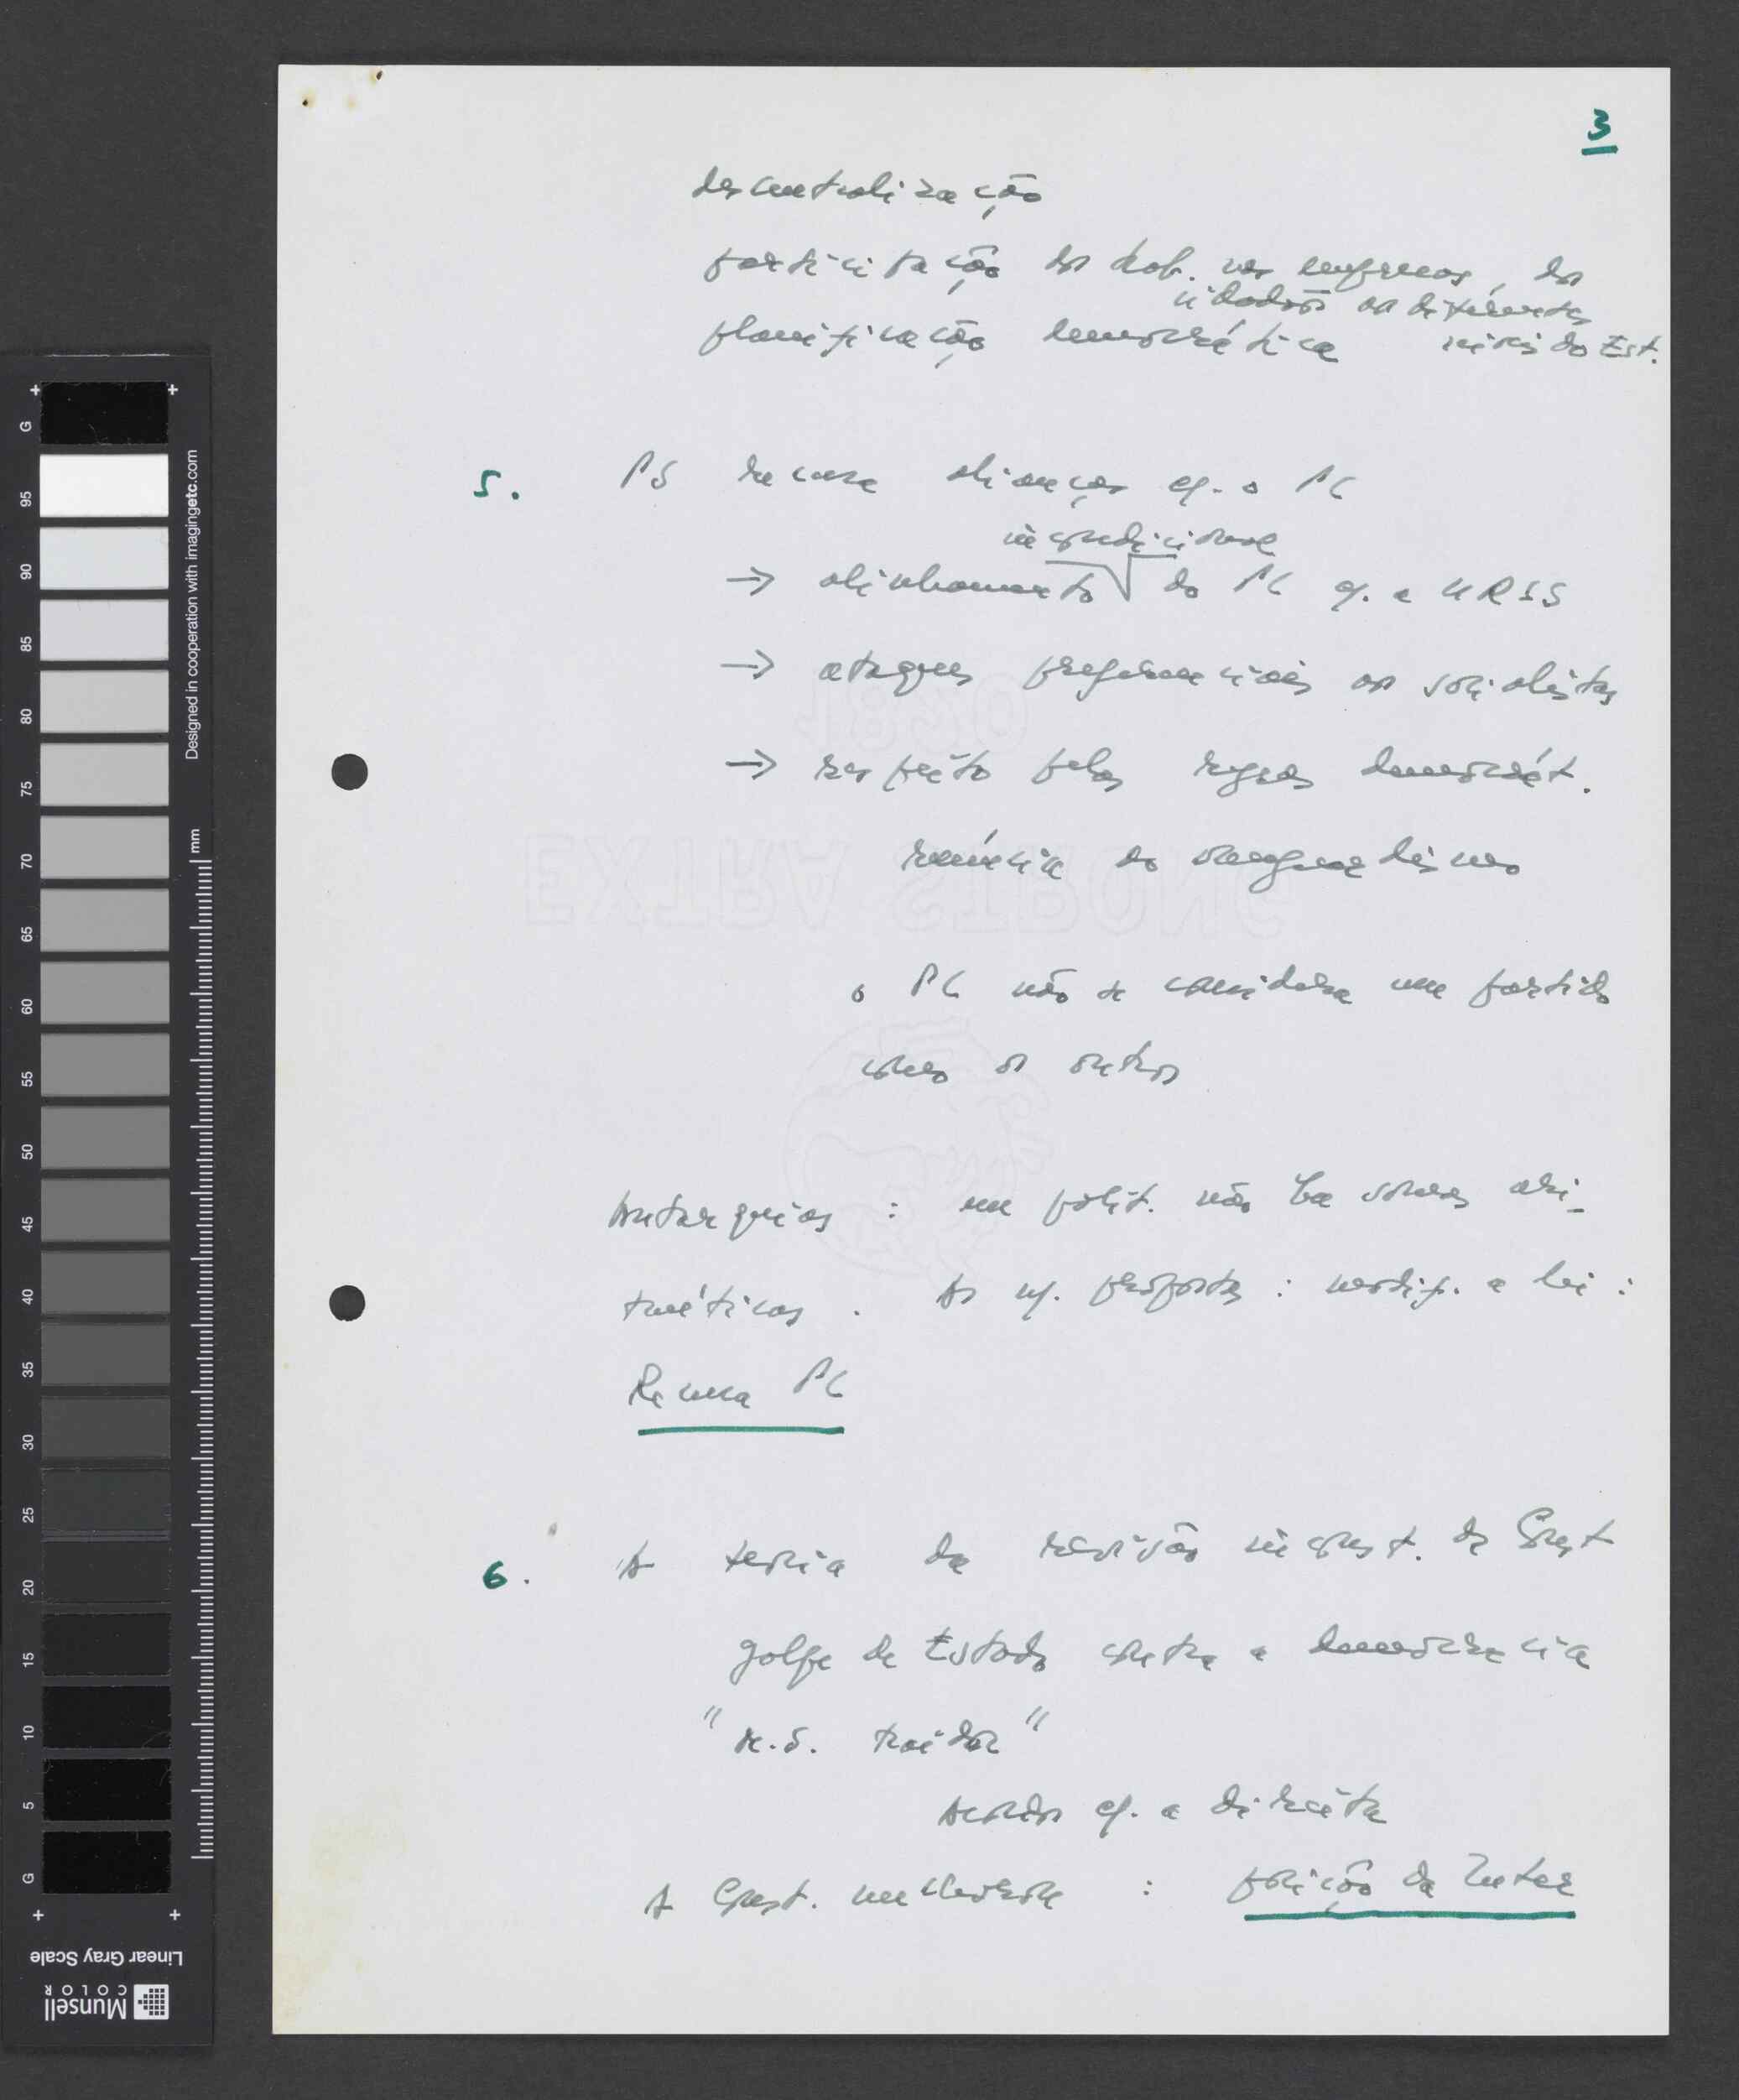 3
descentralização
participação dos trab. nas empresas, dos
cidadãos aos diferentes
planificação democrática níveis do Est.
5. PS recusa alianças c/. o PC
incondicional
→ alinhamento do PC c/. a URSS
→ ataques preferenciais aos socialistas
→ respeito pelas regras democrát.
renúncia do vanguardismo
o PC não se considera um partido
como os outros
Autarquias : em polít. não há somas ari-
tméticas . As n/. propostas : modif. a lei :
Recusa PC
6. A teoria da revisão inconst. da Const
golpe de Estado contra a democracia
" M.S. traidor "
acordos c/. a direita
A Const. melhorada : posição da Inter
EXTRA STRONG
G
95
90
85
80
75
70
65
60
55
50
45
40
35
30
25
20
15
10
5
G
Designed in cooperation with imagingetc.com
mm
Linear Gray Scale
Munsell
COLOR